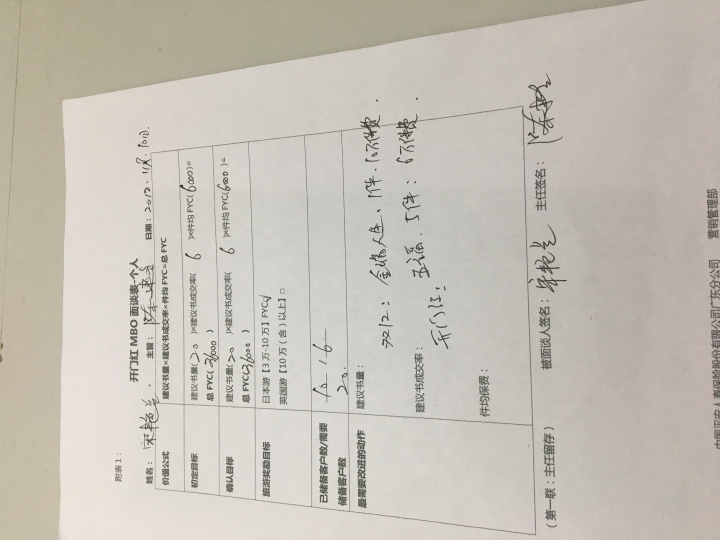 附表1：
开门红 MBO 面谈表-个人
姓名： 主管： 日期：2017.11月.10日.
价值公式 建议书量×建议书成交率×件均 FYC=总 FYC
初定目标 建议书量(20)×建议书成交率( 6 )×件均 FYC(6000)=
总 FYC(36000)
确认目标 建议书量(20)×建议书成交率( 6 )×件均 FYC(6000)=
总 FYC(36000)
旅游奖励目标 日本游【3 万-10 万】FYC
英国游【10 万（含）以上】□
已储备客户数/需要
储备客户数
20.
最需要改进的动作 建议书量：
双12： 人生、1件.10万保费.
建议书成交率：
开门红： 5件：6万保费.
件均保费：
被面谈人签名： 主任签名：
（第一联：主任留存）
中国平安人寿保险股份有限公司广东分公司 营销管理部